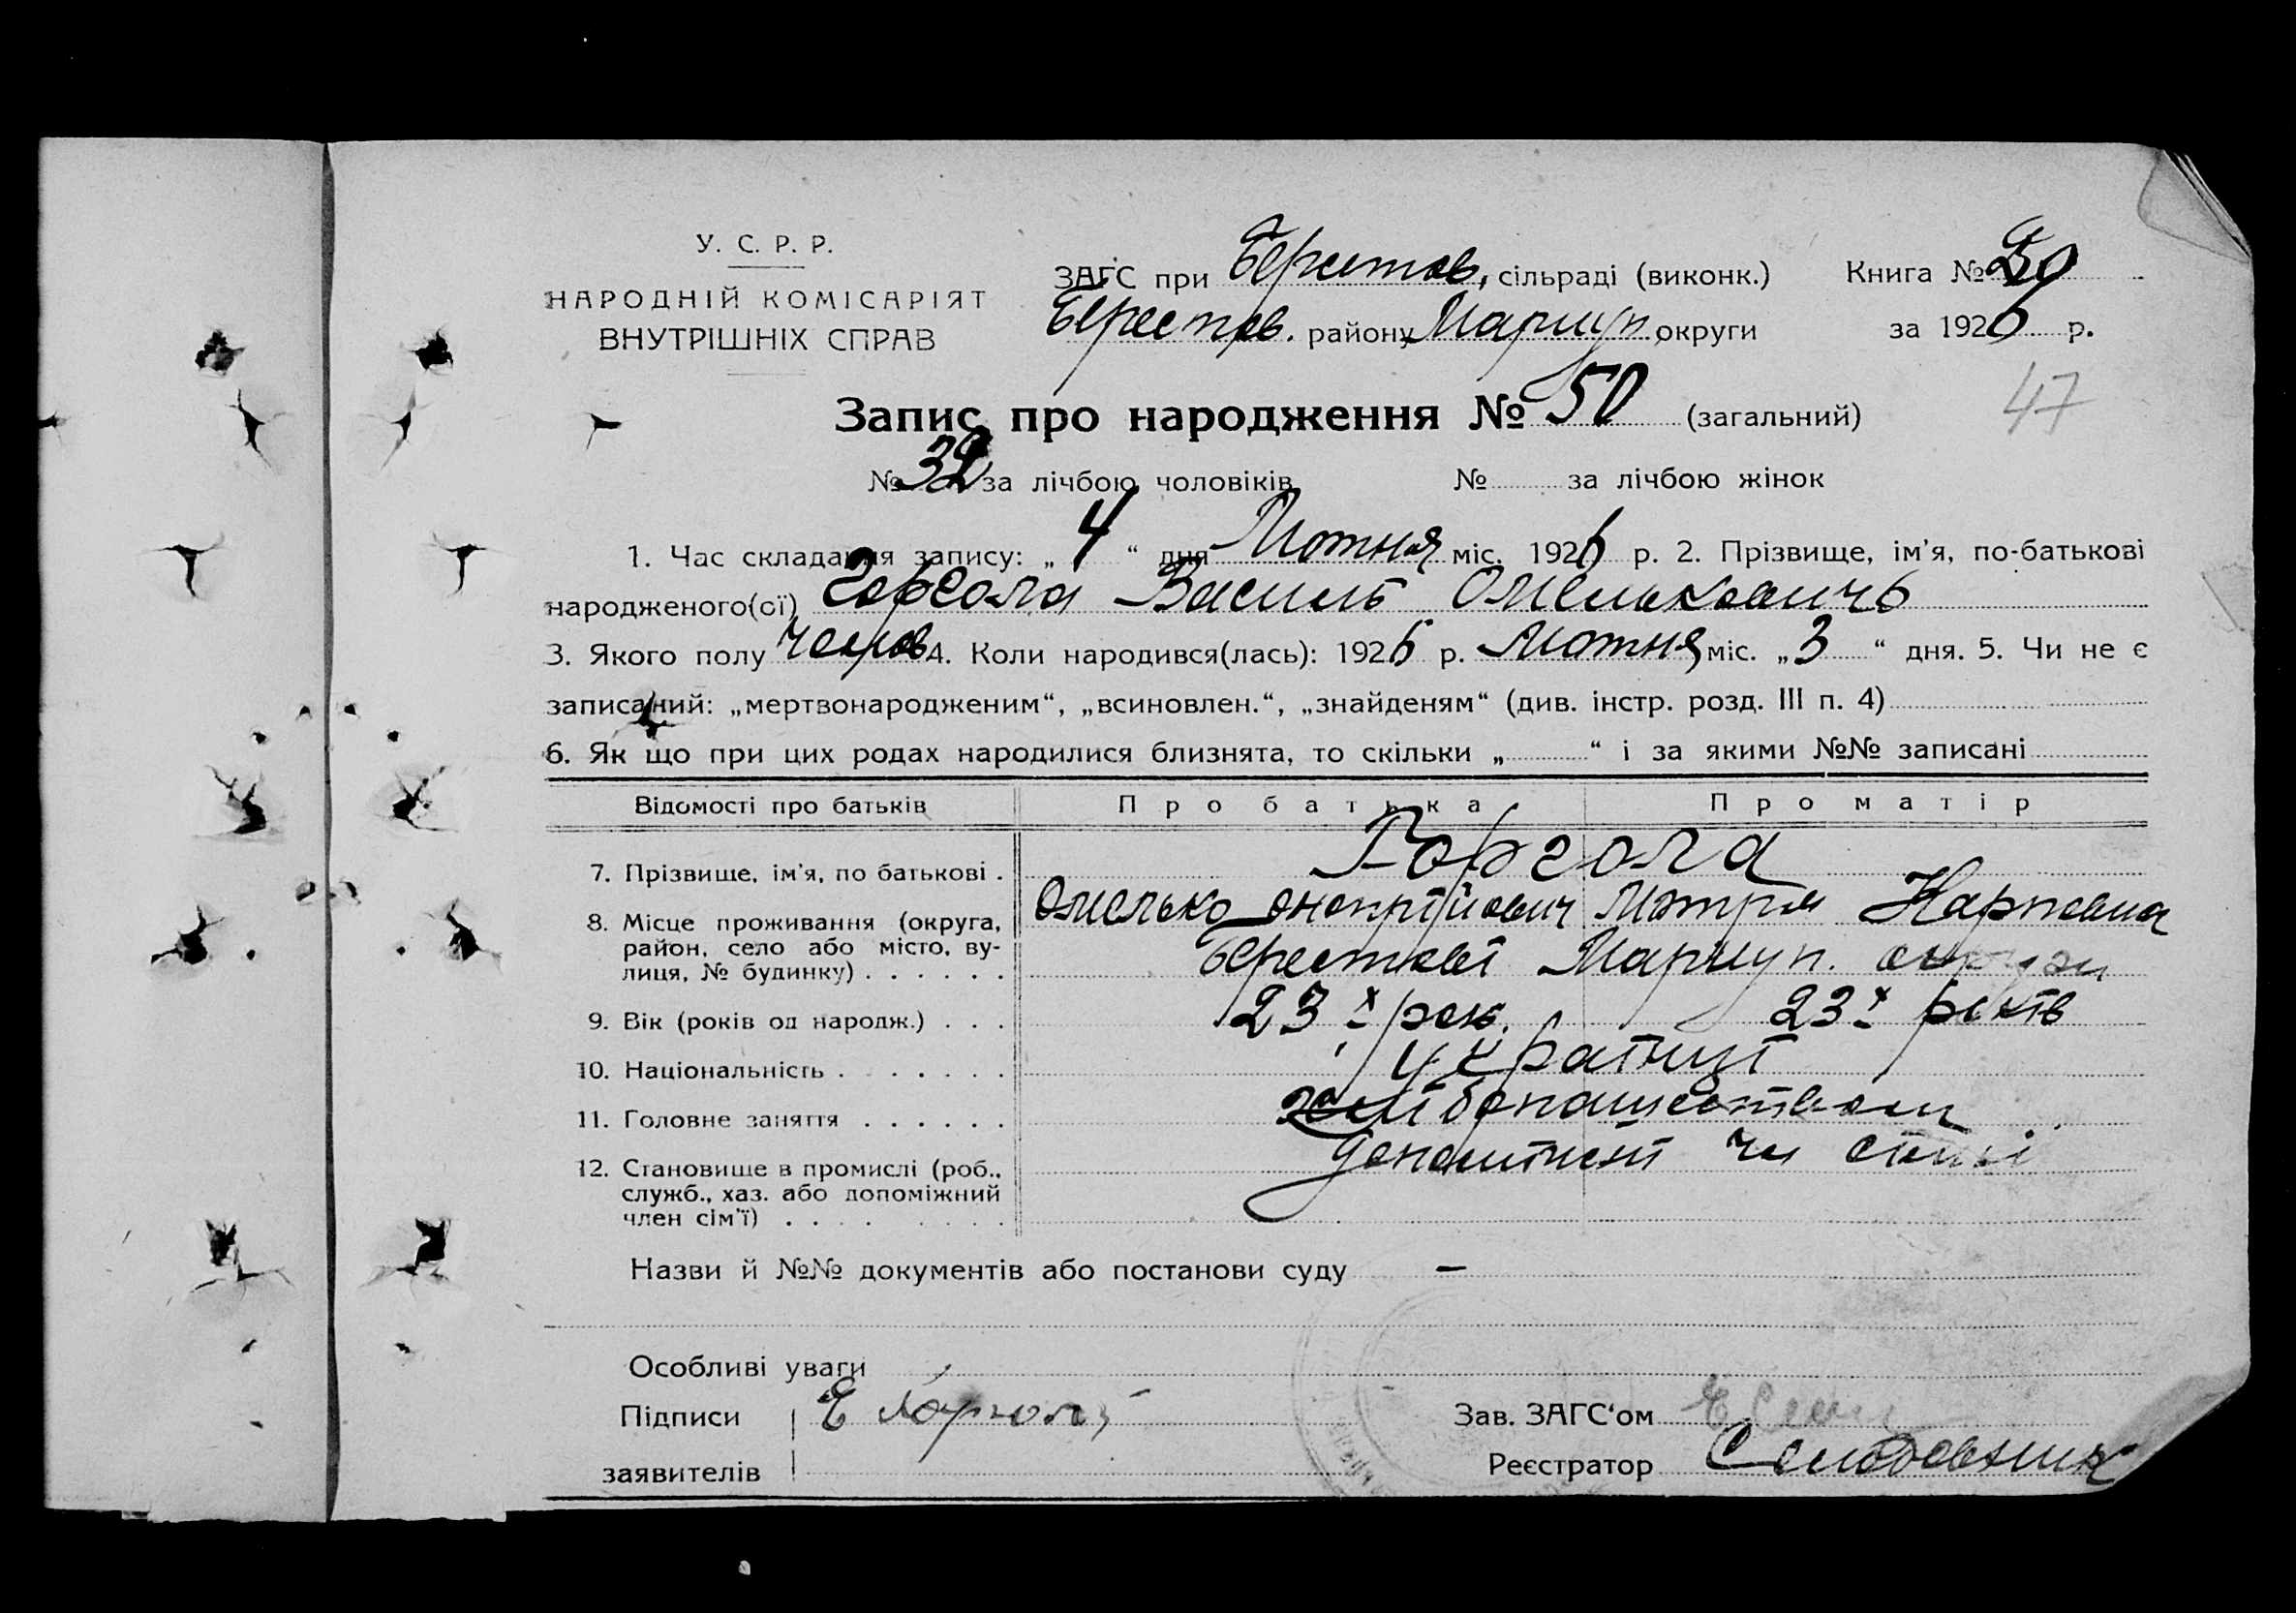 У. С. Р. Р.
НАРОДНІЙ КОМІСАРІЯТ
ВНУТРІШНІХ СПРАВ
ЗАГС при Берестов. сільраді (виконк.) Книга №
Берестов. району Мариуп. округи за 1926 р.
Запис про народження № 50 (загальний) 47
№ 32 за лічбою чоловіків № за лічбою жінок
1. Час складання запису: „ 4 “ дня Лютня міс. 1926 р. 2. Прізвище, ім’я, по-батькові
народженого(ої) Горгола Василь Омельковичь
3. Якого полу 4. Коли народився(лась): 1926 р. Лютня міс. „ 3 “ дня. 5. Чи не є
записаний: „мертвонародженим“, „всиновлен.“, „знайденям“ (див. інстр. розд. III п. 4)
6. Як що при цих родах народилися близнята, то скільки „ “ і за якими №№ записані
Відомості про батьків Про батька Про матір
7. Прізвище, ім’я, по батькові . Горгола
Омелько Онопрійович Мотря Карповна
8. Місце проживання (округа,
район, село або місто, ву-
лиця, № будинку) . . . . . . Берестові Мариуп. округи
9. Вік (років од народж.) . . . 23 х рок. 23 х років
10. Національність . . . . . . . україици
11. Головне заняття . . . . . . хліборапшеством
12. Становище в промислі (роб.,
служб., хаз. або допоміжний
член сім’ї) . . . . . . . . чи
Назви й №№ документів або постанови суду —
Особливі уваги
Підписи Е Горгола Зав. ЗАГС‘ом
заявителів Реєстратор